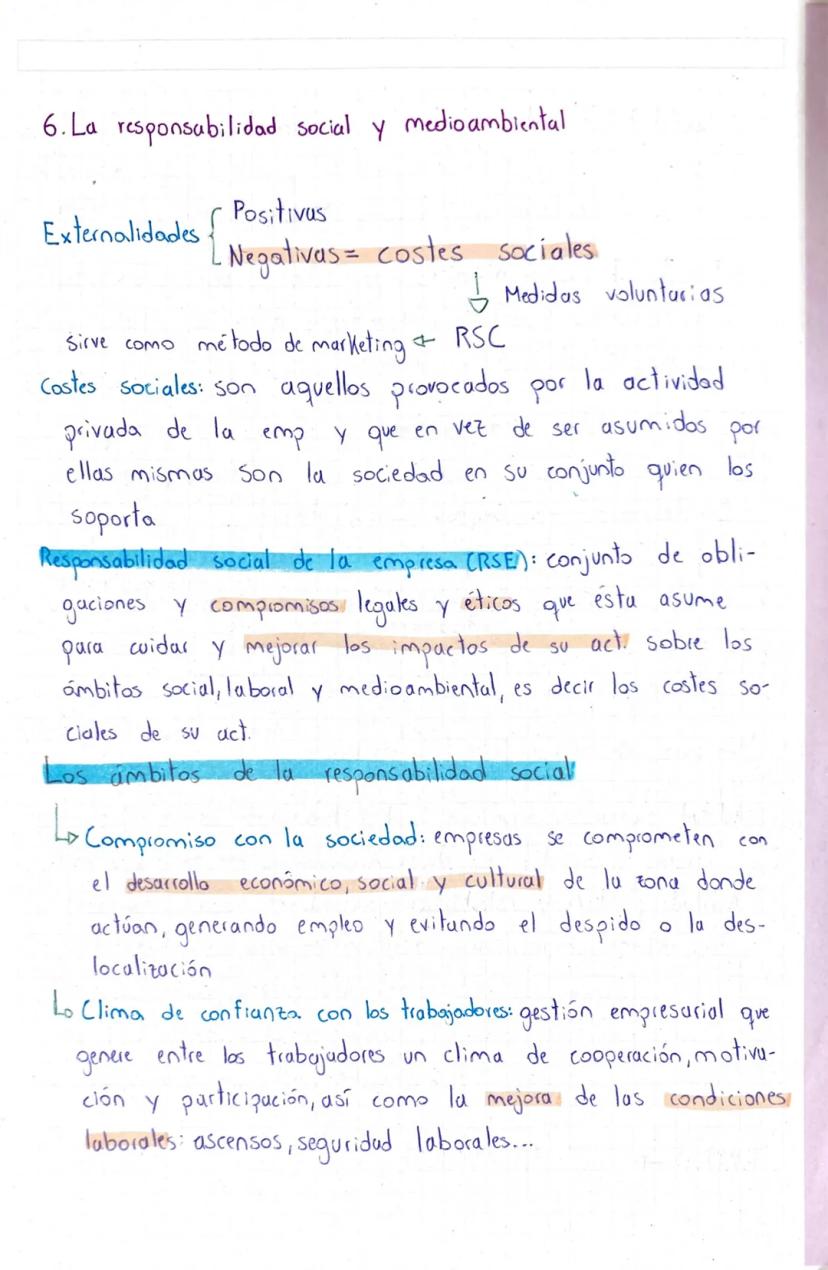 6. La responsabilidad social y medioambiental
Externalidades
Positivas
Negativas = costes sociales
Medidas voluntarias
sirve como método de marketing ← RSC
Costes sociales: son aquellos provocados por la actividad
privada de la emp y que en vez de ser asumidos por
ellas mismas son la sociedad en su conjunto quien los
soporta
Responsabilidad social de la empresa (RSE): conjunto de obli-
gaciones y compromisos legales y éticos que ésta asume
para cuidar y mejorar los impactos de su act. sobre los
ámbitos social, laboral y medioambiental, es decir los costes so-
ciales de su act.
Los ámbitos de la responsabilidad social
↳ Compromiso con la sociedad: empresas se comprometen con
el desarrollo económico, social y cultural de la zona donde
actúan, generando empleo y evitando el despido o la des-
localización
↳ Clima de confianza con los trabajadores: gestión empresarial que
genere entre los trabajadores un clima de cooperación, motiva-
ción y participación, así como la mejora de las condiciones
laborales: ascensos, seguridad laborales...